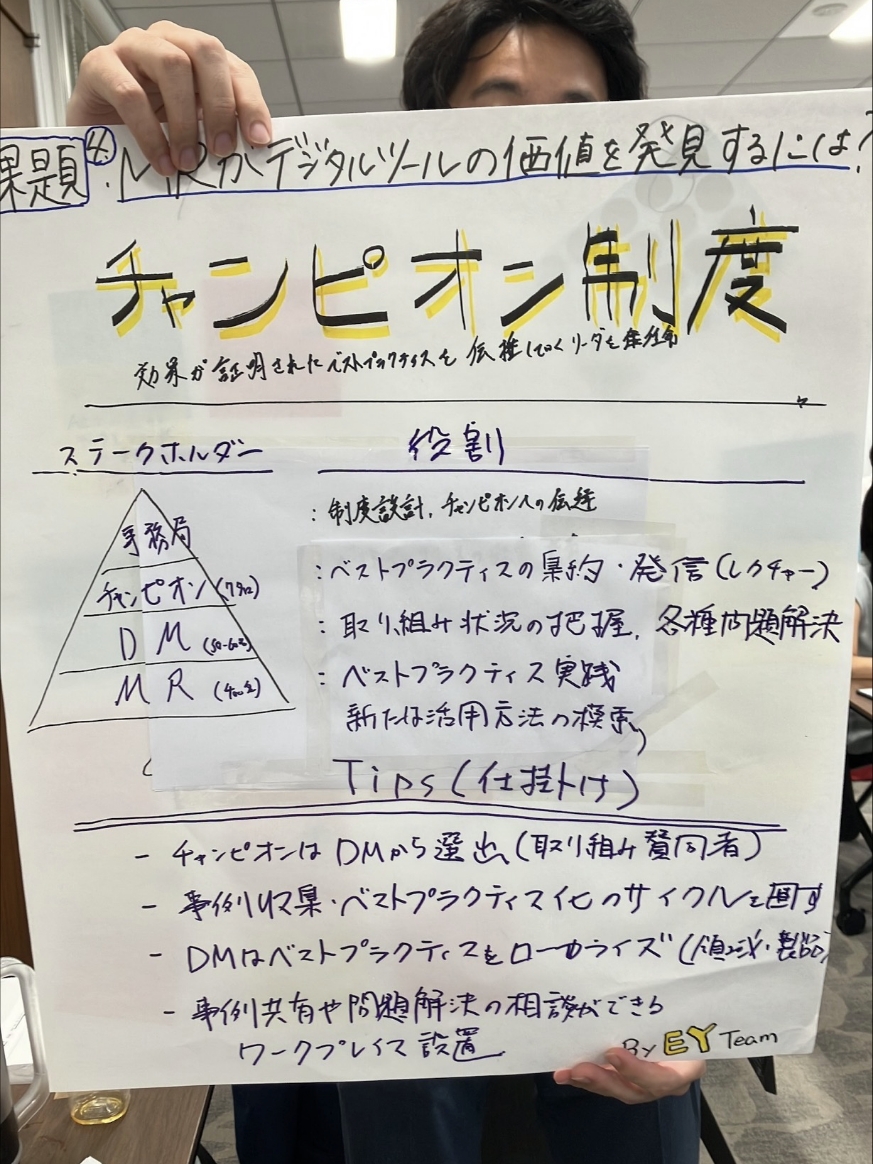 課題 4. MRがデジタルツールの価値を発見するには?
チャンピオン制度
効果が証明されたベストプラクティスを伝推していくリーダを任命
ステークホルダー 役割
事務局 : 制度設計, チャンピオンへの伝達
チャンピオン : ベストプラクティスの集約・発信(レクチャー)
DM (50-60名) : 取り組み状況の把握, 各種問題解決
MR (400名) : ベストプラクティス実践
新たな活用方法の模索
Tips(仕掛け)
- チャンピオンはDMから選出(取り組み賛同者)
- 事例収集・ベストプラクティス化のサイクルを回す
- DMはベストプラクティスをローカライズ(領域・製品)
- 事例共有や問題解決の相談ができる
ワークプレイス設置
By EY Team